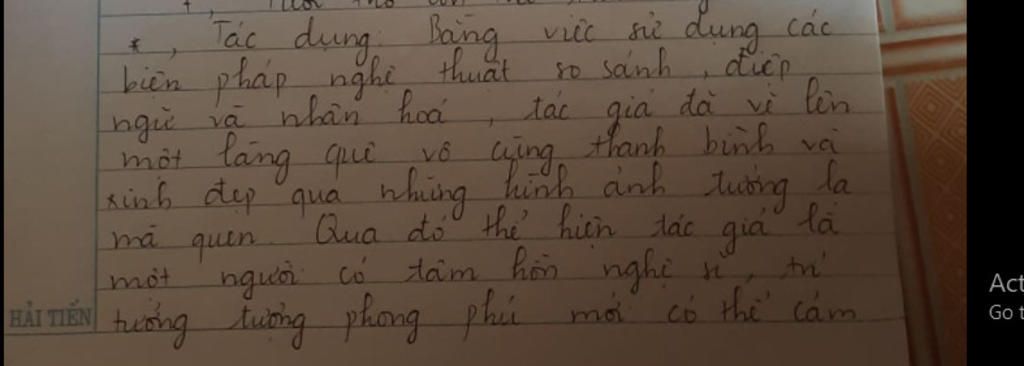 *, Tác dụng: Bằng việc sử dụng các
biện pháp nghệ thuật so sánh, điệp
ngữ và nhân hoá, tác giả đã vẽ lên
một làng quê vô cùng thanh bình và
xinh đẹp qua những hình ảnh tưởng lạ
mà quen. Qua đó thể hiện tác giả là
một người có tâm hồn nghệ sĩ, trí
tưởng tượng phong phú mới có thể cảm
HẢI TIẾN
Act
Go t